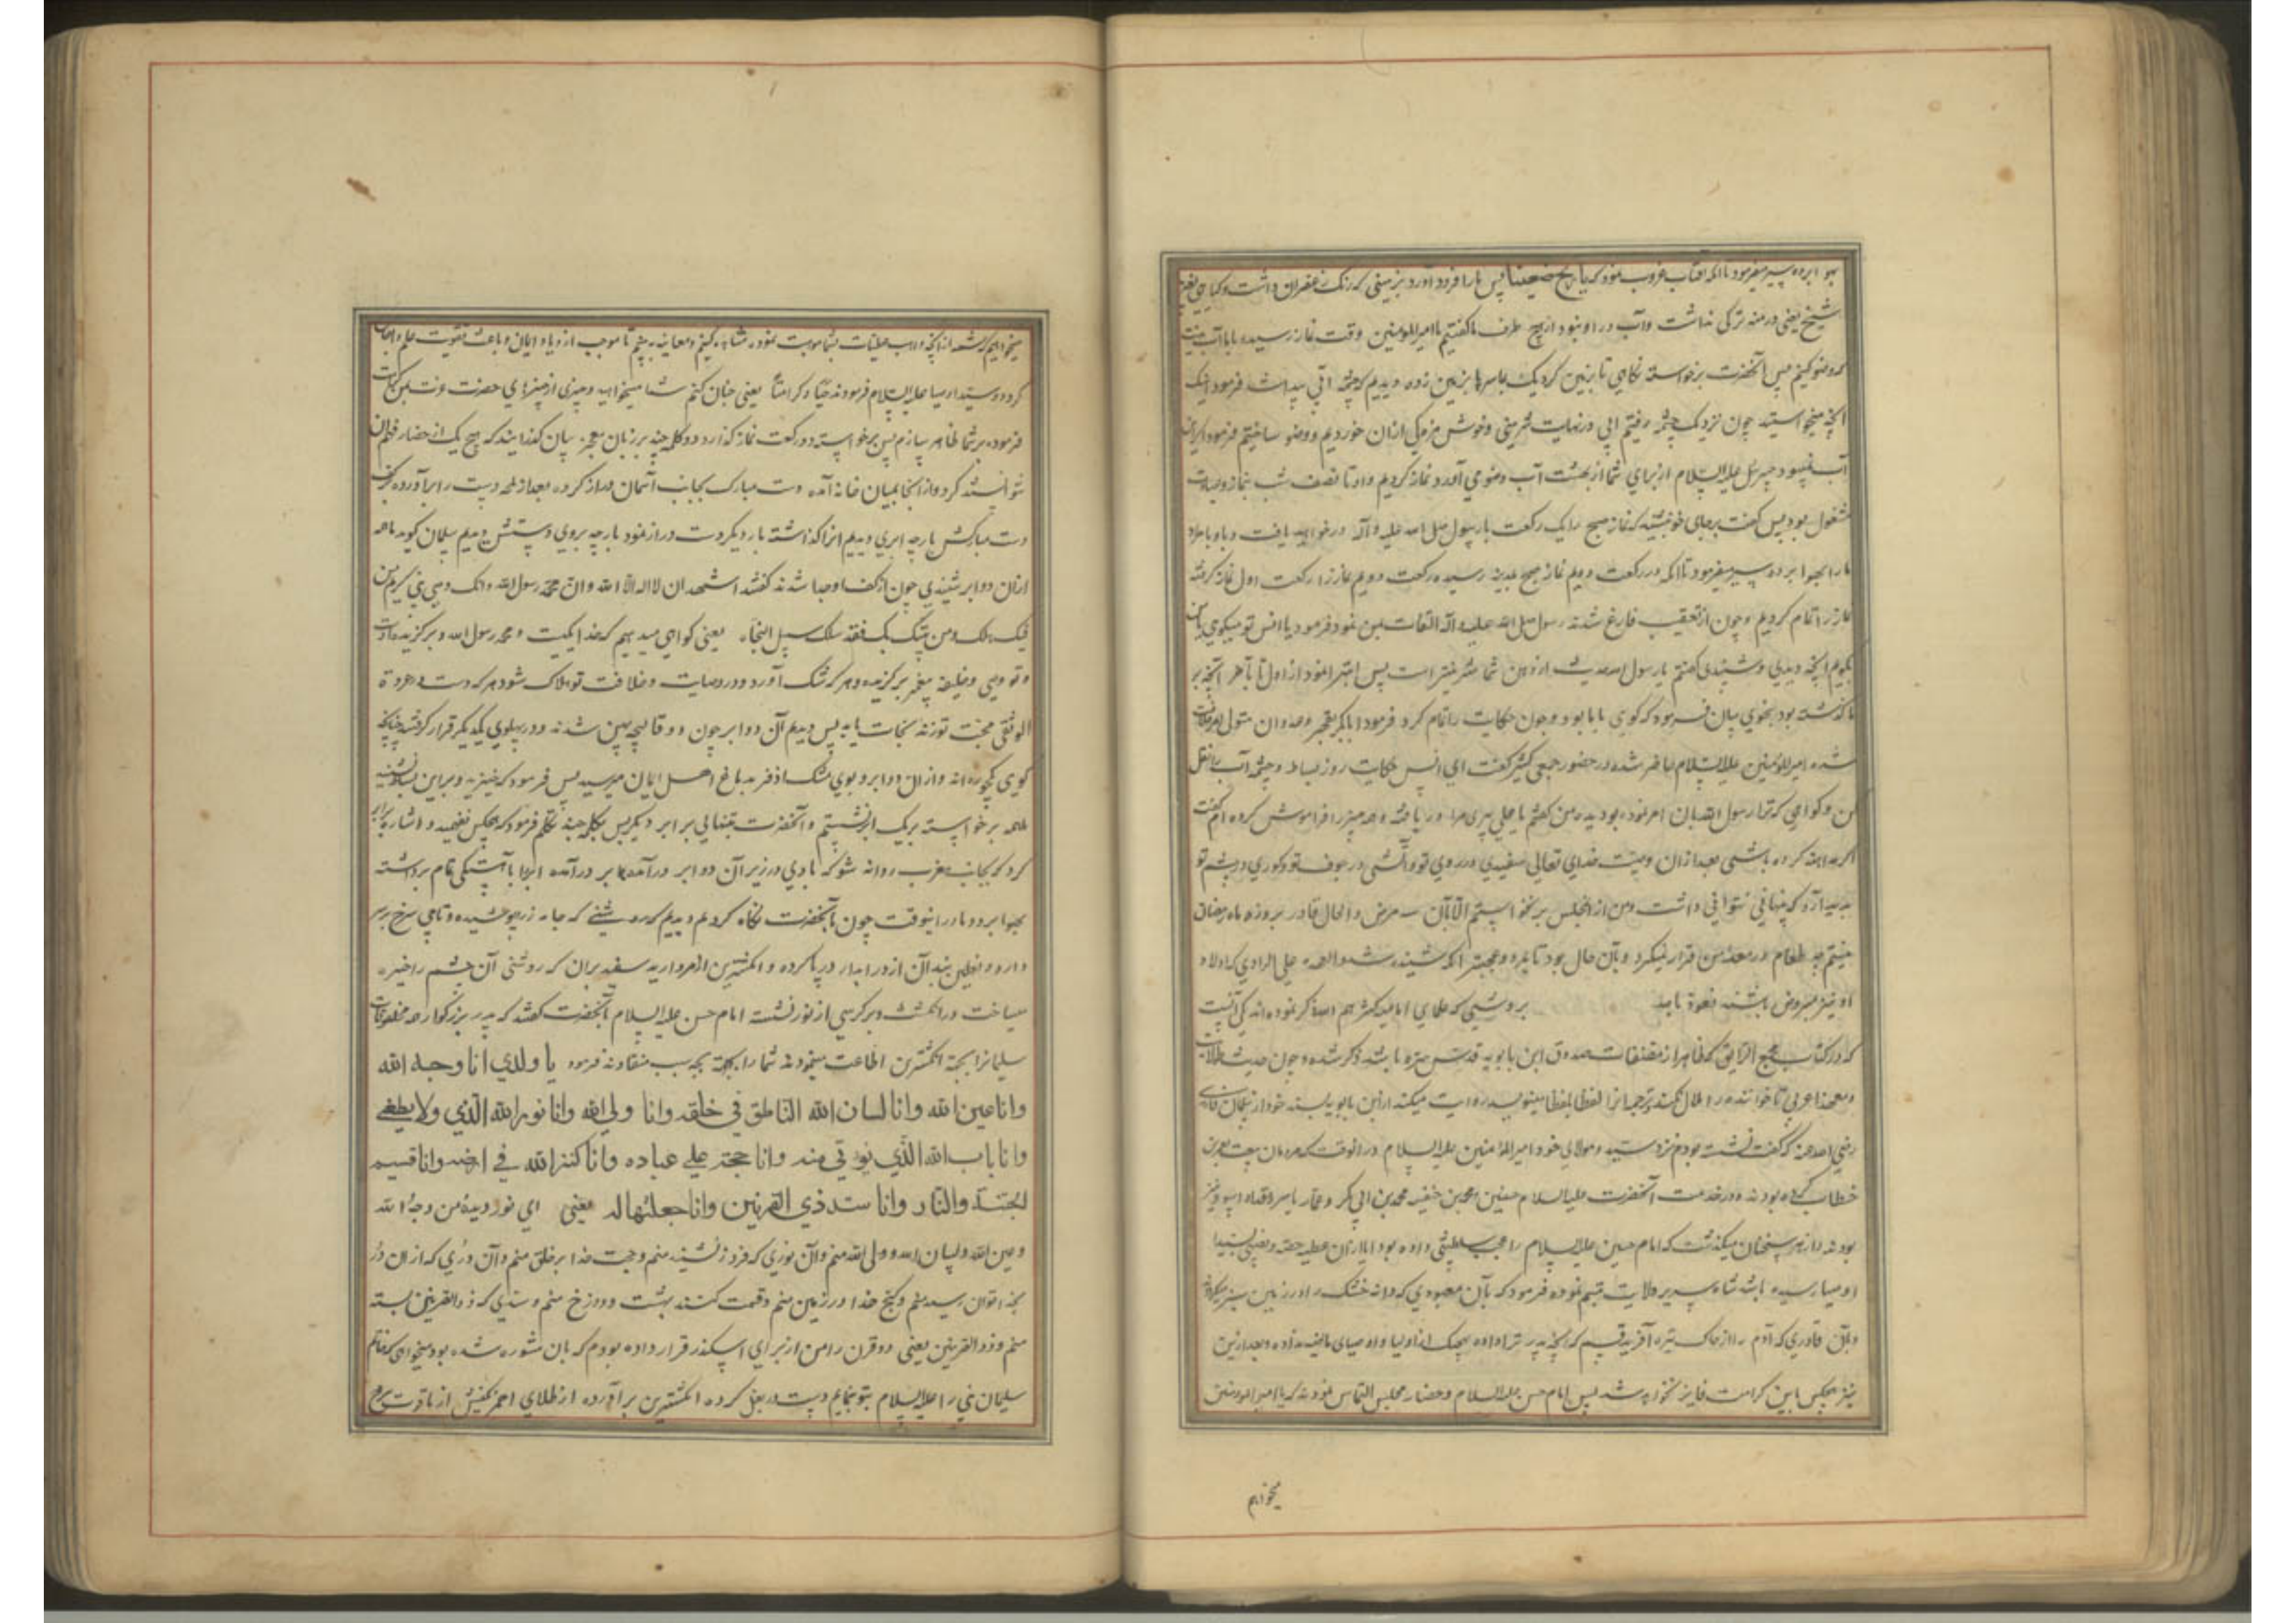 بهوا برده سیر میفرمود تا آنکه آفتاب غروب نمود که یا ریح ضعینا پس ما را فرود آورد بزمینی که رنک زعفران داشت و کیاهی بغیر
شیخ یعنی درمنه ترکی نداشت و آب در او نبود از هیچ طرف ما کفتیم یا امیرالمومنین وقت نماز رسیده با ما آب نیست
که وضو کنیم پس آنحضرت برخواسته نکاهی تا بزمین کرد یک جا سر پا بزمین زده دیدیم که چشمه آبی پیدا شد فرمود اینک
آنچه میخواستید چون نزدیک چشمه رفتیم آبی در نهایت شیرینی و خوش مزکی ازان خوردیم و وضو ساختیم فرمود اکر این
آب نمیبود جبرئیل علیه السلام از برای شما از بهشت آب وضوی آورد نماز کردیم و او تا نصف شب بنماز و عبادت
مشغول بود پس کفت برجای خود بنشینید که نماز صبح را یک رکعت با رسول صلی الله علیه و آله درخواهید یافت و باد باهزاد
ما را بهوا برده سیر میفرمود تا آنکه در رکعت دویم نماز صبح بمدینه رسیده رکعت دویم نماز را رکعت اول نماز کرفته
نماز را تمام کردیم و چون از تعقیب فارغ شدند رسول صلی الله علیه و آله التفات بمن نمود فرمود یا انس تو میکوی یا من
بکویم آنچه دیدی و شنیدی کفتم یا رسول الله حدیث از دهن شما شیرینتر است پس ابتدا نمود از اول تا بآخر آنچه بر
ما کذشته بود بنحوی بیان فرمود که کوی با ما بود و چون حکایت را تمام کرد فرمود
شده امیرالمومنین علیه السلام حاضر شده در حضور جمعی کثیر کفت ای انس حکایت روز بساط و چشمه آب را نقل
کن و کواهی که ترا رسول الله بآن امر نموده بود بده من کفتم یا علی پیری مرا دریافته و همه چیز را فراموش کرده ام کفت
اکر مداهنه کرده باشی بعد ازان وصیت خدای تعالی سفیدی در روی تو و آتشی در جوف تو و کوری در چشم تو
پدید آرد که پنهانی نتوانی داشت و من از مجلس برنخواستم الا بآن سه مرض و الحال قادر بروزه ماه رمضان
نیستم چه طعام در معده من قرار نمیکیرد و بآن حال بود تا بمرد و عجبتر آنکه شنیده شد والعهده علی الراوی که اولاد
او نیز مبروض باشند نعوذ بالله بروشی که علمای امامیه کثرهم الله ذکر نموده اند یکی آنست
که در کتاب مجمع الرایق که ظاهرا از مصنفات صدوق ابن بابویه قدس سره باشد ذکر شده و چون حدیث طولانیست
و بعضی را عربی تا خواننده را ملال نکند ترجمه آنرا لفظا بلفظ مینویسد روایت میکند از ابن بابویه بسند خود از سلمان فارسی
رضی الله عنه که کفت نشسته بودم نزد سید و مولای خود امیرالمومنین علیه السلام در آنوقت که مردمان بیعت بعمر بن
خطاب کرده بودند و در خدمت آنحضرت علیه السلام حسنین و محمد بن حنفیه و محمد بن ابی بکر و عمار یاسر و مقداد اسود نیز
بودند و از هر سخنان میکذشت که امام حسن علیه السلام
اوصیا رسیده باشد شاه سریر ولایت تبسم نموده فرمود که بآن معبودی که دانه خشک را در زمین سبز میکرداند
و بآن قادری که آدم را از خاک تیره آفرید قسم که آنچه بپدر ترا داده بهیچیک از اولیا و اوصیای ماضیه نداده و بعد ازین
نیز هیچکس باین کرامت فایز نخواهد شد پس امام حسن علیه السلام و حضار مجلس التماس نمودند که یا امیرالمومنین
میخواهیم
میخواهیم که شمه از آنچه واهب عطیات بشما موهبت نموده مشاهده کنیم و معاینه ببینیم تا موجب ازدیاد ایمان و باعث تقویت علم و ایقان
کردد و سید اوصیا علیه السلام فرمودند حبا و کرامتا یعنی چنان کنم شما میخواهید و چیزی از چیزهای حضرت عزت بمن کرامت
فرموده بر شما ظاهر سازم پس برخواسته دو رکعت نماز کذارد و کلمه چند بر زبان معجز بیان کذرانیدند که هیچ یک از حضار فهم آن
نتوانستند کرد و از آنجا بمیان خانه آمده دست مبارک بجانب آسمان دراز کرده بعد از لمحه دست را برآورده بر کف
دست مبارکش پارچه ابری دیدیم آنرا کذاشته بار دیکر دست دراز نمود پارچه بروی دستش دیدیم سلمان کوید ما همه
ازان دو ابر شنیدیم چون از کف او جدا شدند کفتند اشهد ان لا اله الا الله و ان محمد رسول الله و انک وصی نبی کریم من
شک فیک هلک و من تمسک بک فقد سلک سبیل النجاة یعنی کواهی میدهیم که خدا یکیست و محمد رسول الله و برکزیده اوست
و تو وصی و خلیفه پیغمبر برکزیده و هر که شک آورد در وصایت و خلافت تو هلاک شود هر که دست در عروة
الوثقی محبت تو زند نجات یابد پس دیدیم آن دو ابر چون دو قالیچه پهن شدند و در پهلوی یکدیکر قرار کرفتند چنانکه
کوی یکپارچه اند و ازان دو ابر بوی مشک اذفر بدماغ اهل ایمان میرسید پس فرمود که خیزید و براین بساط نشینید
ما همه برخواسته بریک ابر نشستیم و آنحضرت بتنهائی بر ابر دیکر پس بکلمه چند تکلم فرمود که هیچکس نفهمید و اشاره بابر
کرد که بجانب مغرب روانه شو که بادی در زیر آن دو ابر درآمده ابرها باهستکی تمام برداشته
بهوا برد و ما در انوقت چون بآنحضرت نکاه کردیم دیدیم که جامه زرد پوشیده و تاجی سرخ بر سر
دارد و نعلین بند آن از در ابدار در پا کرده و انکشترین از مروارید سفید بران که روشنی آن چشم را خیره
میساخت در انکشت و بر کرسی از نور نشسته امام حسن علیه السلام بآنحضرت کفتند که ای پدر بزرکوار همه مخلوقات
سلیمانرا بجهة انکشترین اطاعت مینمودند شما را بچه سبب منقادند فرمود یا ولدی انا وجه الله
وانا عین الله وانا لسان الله الناطق فی خلقه وانا ولی الله وانا نور الله الذی ولا یطفی
وانا باب الله الذی یوتی منه وانا حجته علی عباده وانا کنز الله فی ارضه وانا قسیم
الجنة والنار وانا سد ذی القرنین وانا جعلتها له یعنی ای نور دیده من وجه الله
و عین الله و لسان الله و ولی الله منم و آن نوری که فرو ننشیند منم و حجت خدا بر خلق منم و آن دری که ازان در
بخدا توان رسید منم و کنج خدا در زمین منم و قسمت کننده بهشت و دوزخ منم و سدی که ذوالقرنین بسته
منم و ذوالقرنین یعنی دو قرن را من از برای اسکندر قرار داده بودم که بان مشهور شده بود میخواهی که خاتم
سلیمان نبی را علیه السلام بتو بنمایم دست در بغل کرده انکشترین برآورده از طلای احمر نکینش از یاقوت سرخ